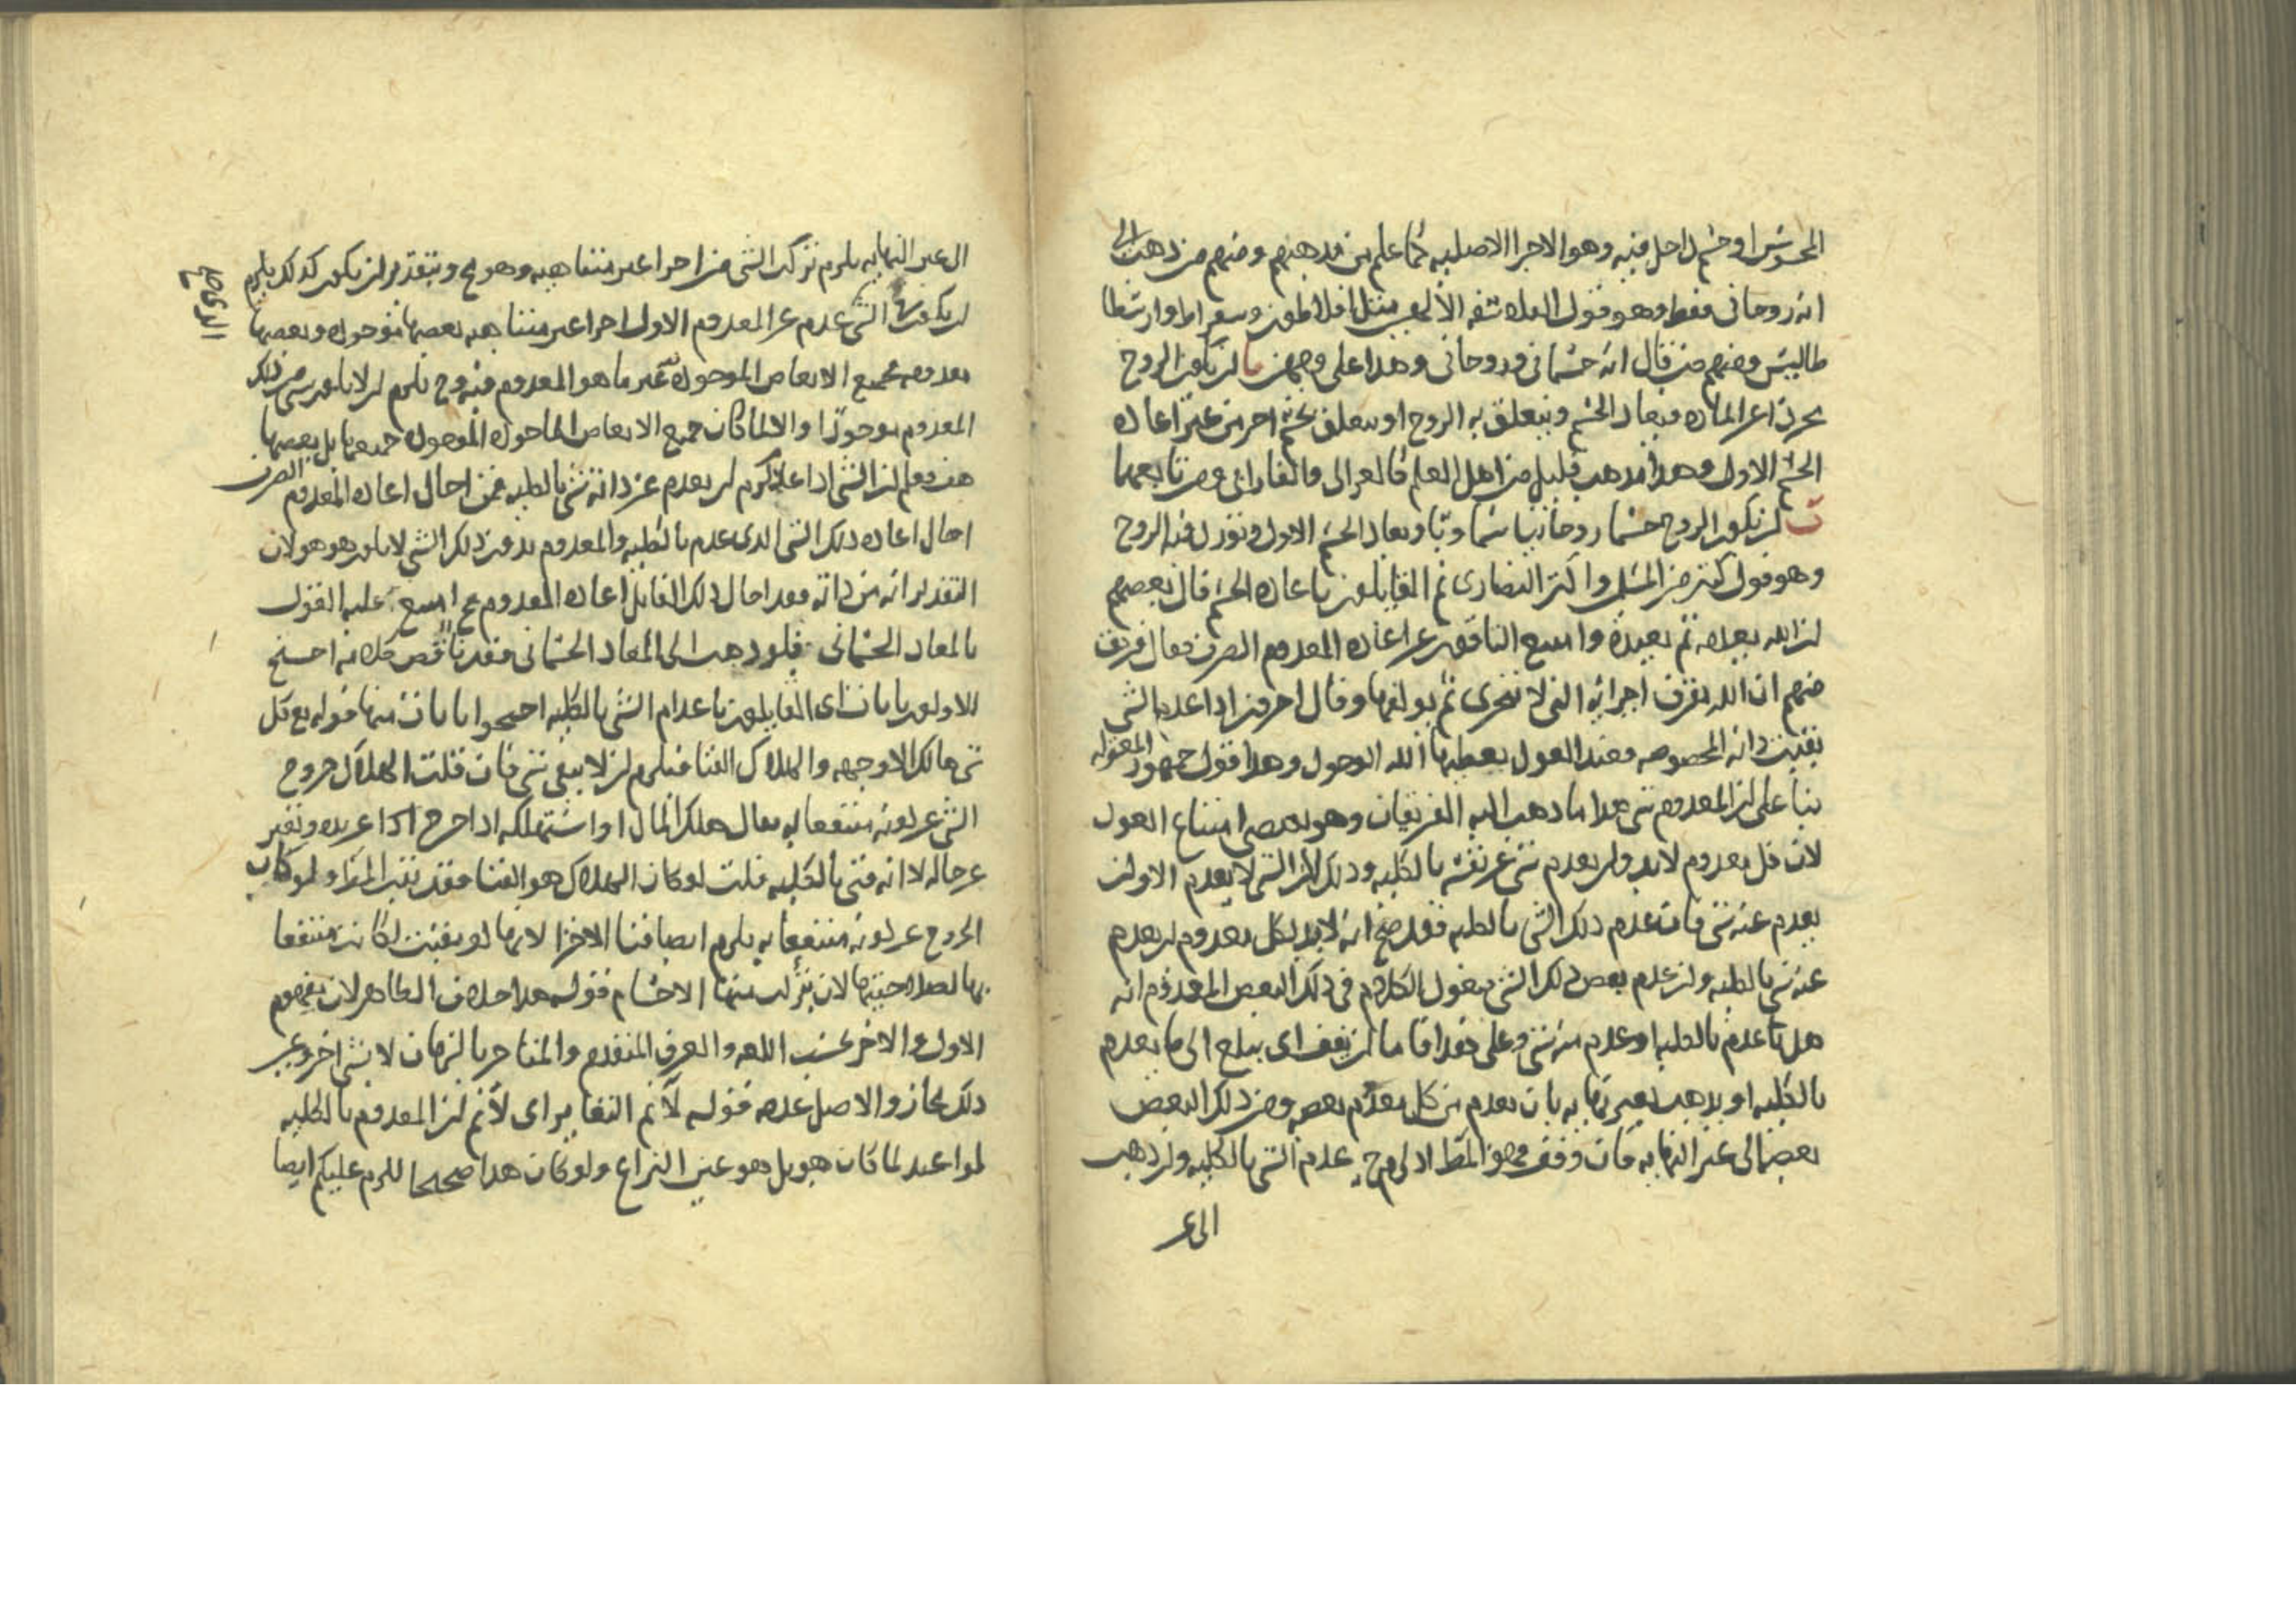 المحسوس او جسم داخل فيه وهو الاجزا الاصليه كما علم من مذهبهم ومنهم من ذهب الى
انه روحانى فقط وهو قول الفلاسفه الالهيين مثل افلاطون وسقراط وارسطا
طاليس ومنهم من قال انه جسمانى وروحانى وهذا على وجهين ا ان يكون الروح
مجردا عن الماده فيعاد الجسم ويتعلق به الروح او يتعلق بجسم اخر من غير اعاده
الجسم الاول وهذا مذهب قليل من اهل العلم كالغزالى والفارابى ومن تابعهما
ب ان يكون الروح جسما روحانيا سماويا ويعاد الجسم الاول وينزل فيه الروح
وهو قول كثير من المسلمين واكثر النصارى ثم القايلون باعاده الجسم قال بعضهم
ان الله يعدمه ثم يعيده وامتنع الباقون عن اعاده المعدوم الصرف فقال فريق
منهم ان الله يفرق اجزائه التى لا تتجزى ثم يولفها وقال اخرون اذا عدم الشى
بقيت ذاته المخصوصه فعند العود يعطيها الله الوجود وهذا قول جمهور المعتزله
بنا على ان المعدوم شى هذا ما ذهب اليه الفريقان وهو يقتضى امتناع العود
لان كل معدوم لابد وان يعدم شى عن نفسه بالكليه وذلك لان الشى لا يعدم الا وان
يعدم عنه شى فان عدم ذلك الشى بالكليه فقد صح انه لابد لكل معدوم ان يعدم
عنه شى بالكليه وان عدم بعض ذلك الشى فيعود الكلام فى ذلك البعض المعدوم انه
هل عدم بالكليه او عدم منه شى وعلى هذا فاما ان يقف اى يبلغ الى ما يعدم
بالكليه او يذهب بغير نهايه بان يعدم من كل معدوم بعضه ومن ذلك البعض
بعضا الى غير النهايه فان وقف فهو المط اذ لزم ح عدم الشى بالكليه وان ذهب
الى غير
الى غير النهايه يلزم تركب الشى من اجزا غير متناهيه وهو مح وبتقدير ان يكون كذلك يلزم
ان يكون الشى عدم عن المعدوم الاول اجزا غير متناهيه بعضها موجوده وبعضها
معدومه فجميع الابعاض الموجوده غير ما هو المعدوم فيه وح يلزم ان لا يكون شى من ذلك
المعدوم موجودا والا لما كان جميع الابعاض الماخوذه الموجوده جميعها بل بعضها
هف فعلم ان الشى اذا عدم لزم ان يعدم عن ذاته شى بالكليه فمن احال اعاده المعدوم الصرف
احال اعاده ذلك الشى الذى عدم بالكليه والمعدوم بدون ذلك الشى لا يكون هو هو لان
التقدير انه من ذاته فقد احال ذلك القايل اعاده المعدوم مح امتنع عليه القول
بالمعاد الجسمانى فلو ذهب الى المعاد الجسمانى فقد ناقض كلامه احتج
الاولون بايات اى القايلون باعدام الشى بالكليه احتجوا بايات منها قوله تع كل
شى هالك الا وجهه والهلاك الفنا فيلزم ان لا يبقى شى فان قلت الهلاك خروج
الشى عن كونه منتفعا به يقال هلك المال او استهلكه اذا اخرجه وتغير
عن حاله لا انه فنى بالكليه قلت لو كان الهلاك هو الفنا فقد ثبت المط ولو كان
الخروج عن كونه منتفعا به يلزم ايضا فنا الاجزا لانها لو بقيت لكانت منتفعا
بها لصلاحيتها لان يتركب منها الاجسام قوله هذا خلاف الظاهر لان مفهوم
الاول والاخر بحسب اللغه والعرف المتقدم والمتاخر بالزمان لا بشى اخر وغير
ذلك مجاز والاصل عدمه قوله لا نم التغاير اى لا نم ان المعدوم بالكليه
لو اعيد لما كان هو بل هو عين النزاع ولو كان هذا صحيحا للزم عليكم ايضا